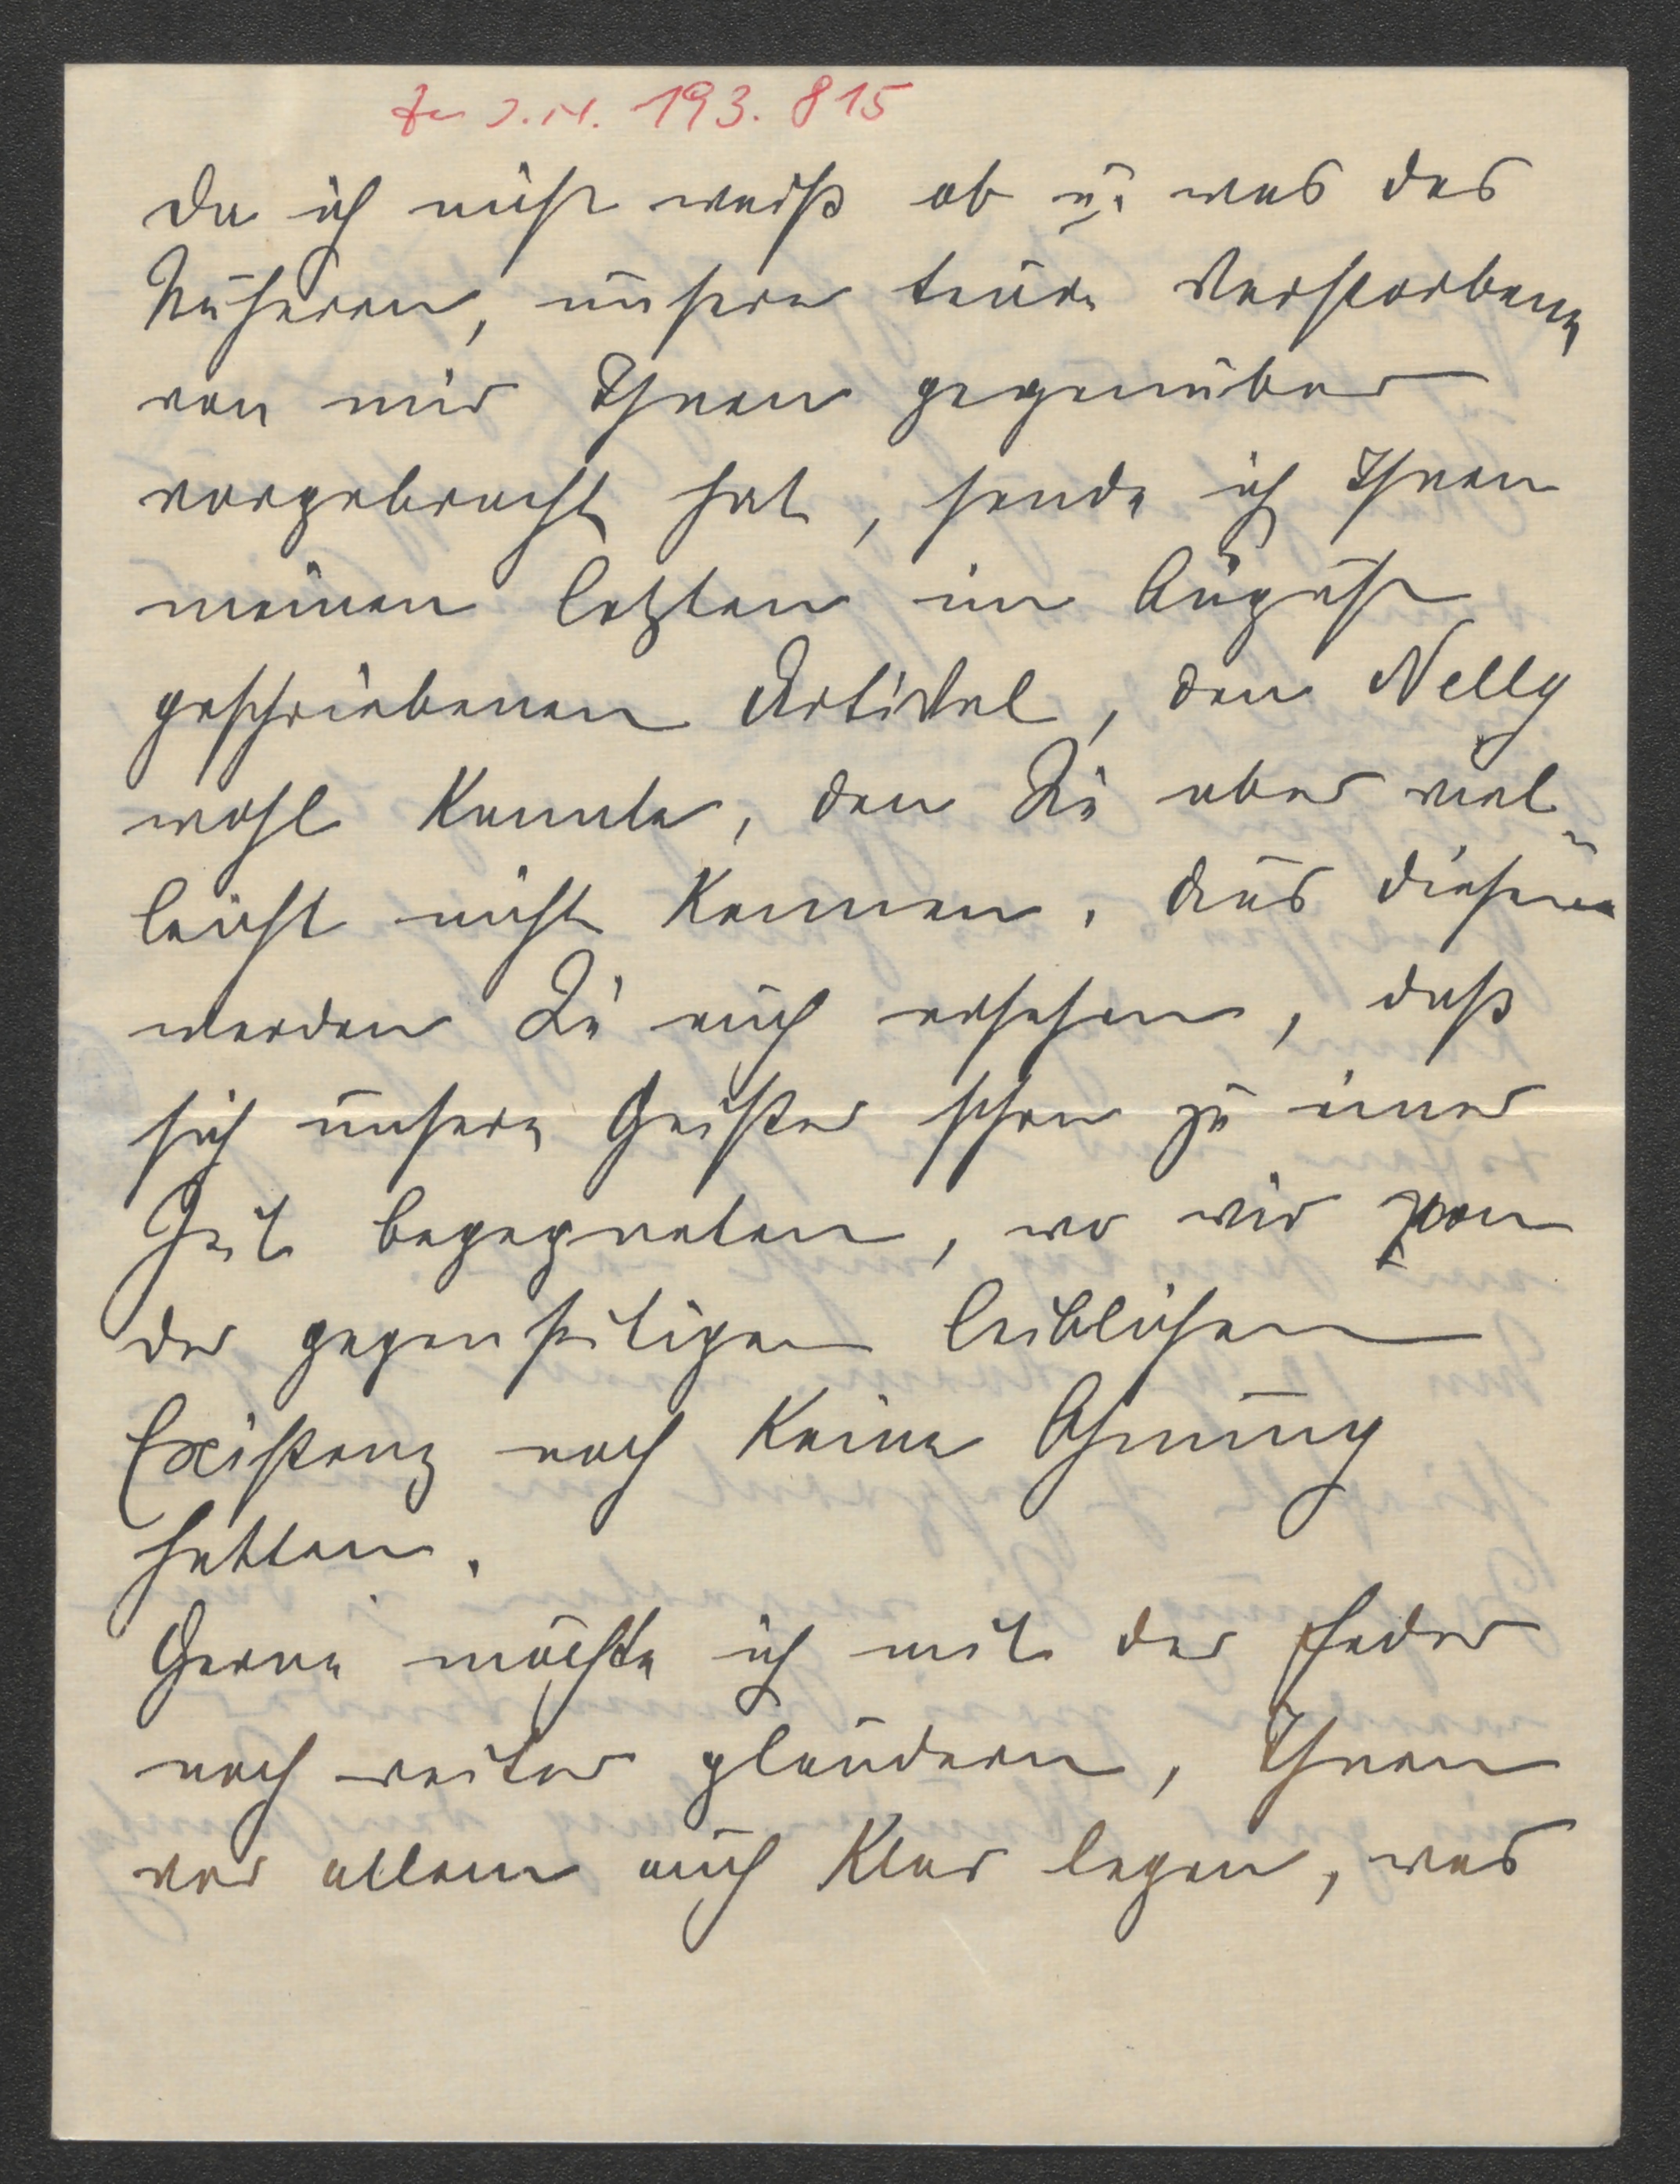 Zu I.N. 193.815
Da ich nicht weiß ob u. was des
Näheren, unsere teure Verstorbene
von mir Ihnen gegenüber
vorgebracht hat, sende ich Ihnen
meinen letzten im August
geschriebenen Artikel, den Nelly
wohl kannte, den Sie aber viel-
leicht nicht kennen. Aus diesem
werden Sie auch ersehen, daß
sich unsere Geister schon zu einer
Zeit begegneten, wo wir von
der gegenseitigen leiblichen
Existenz noch keine Ahnung
hatten.
Gerne möchte ich mit der Feder
noch weiter plaudern, Ihnen
vor allem auch klar legen, was